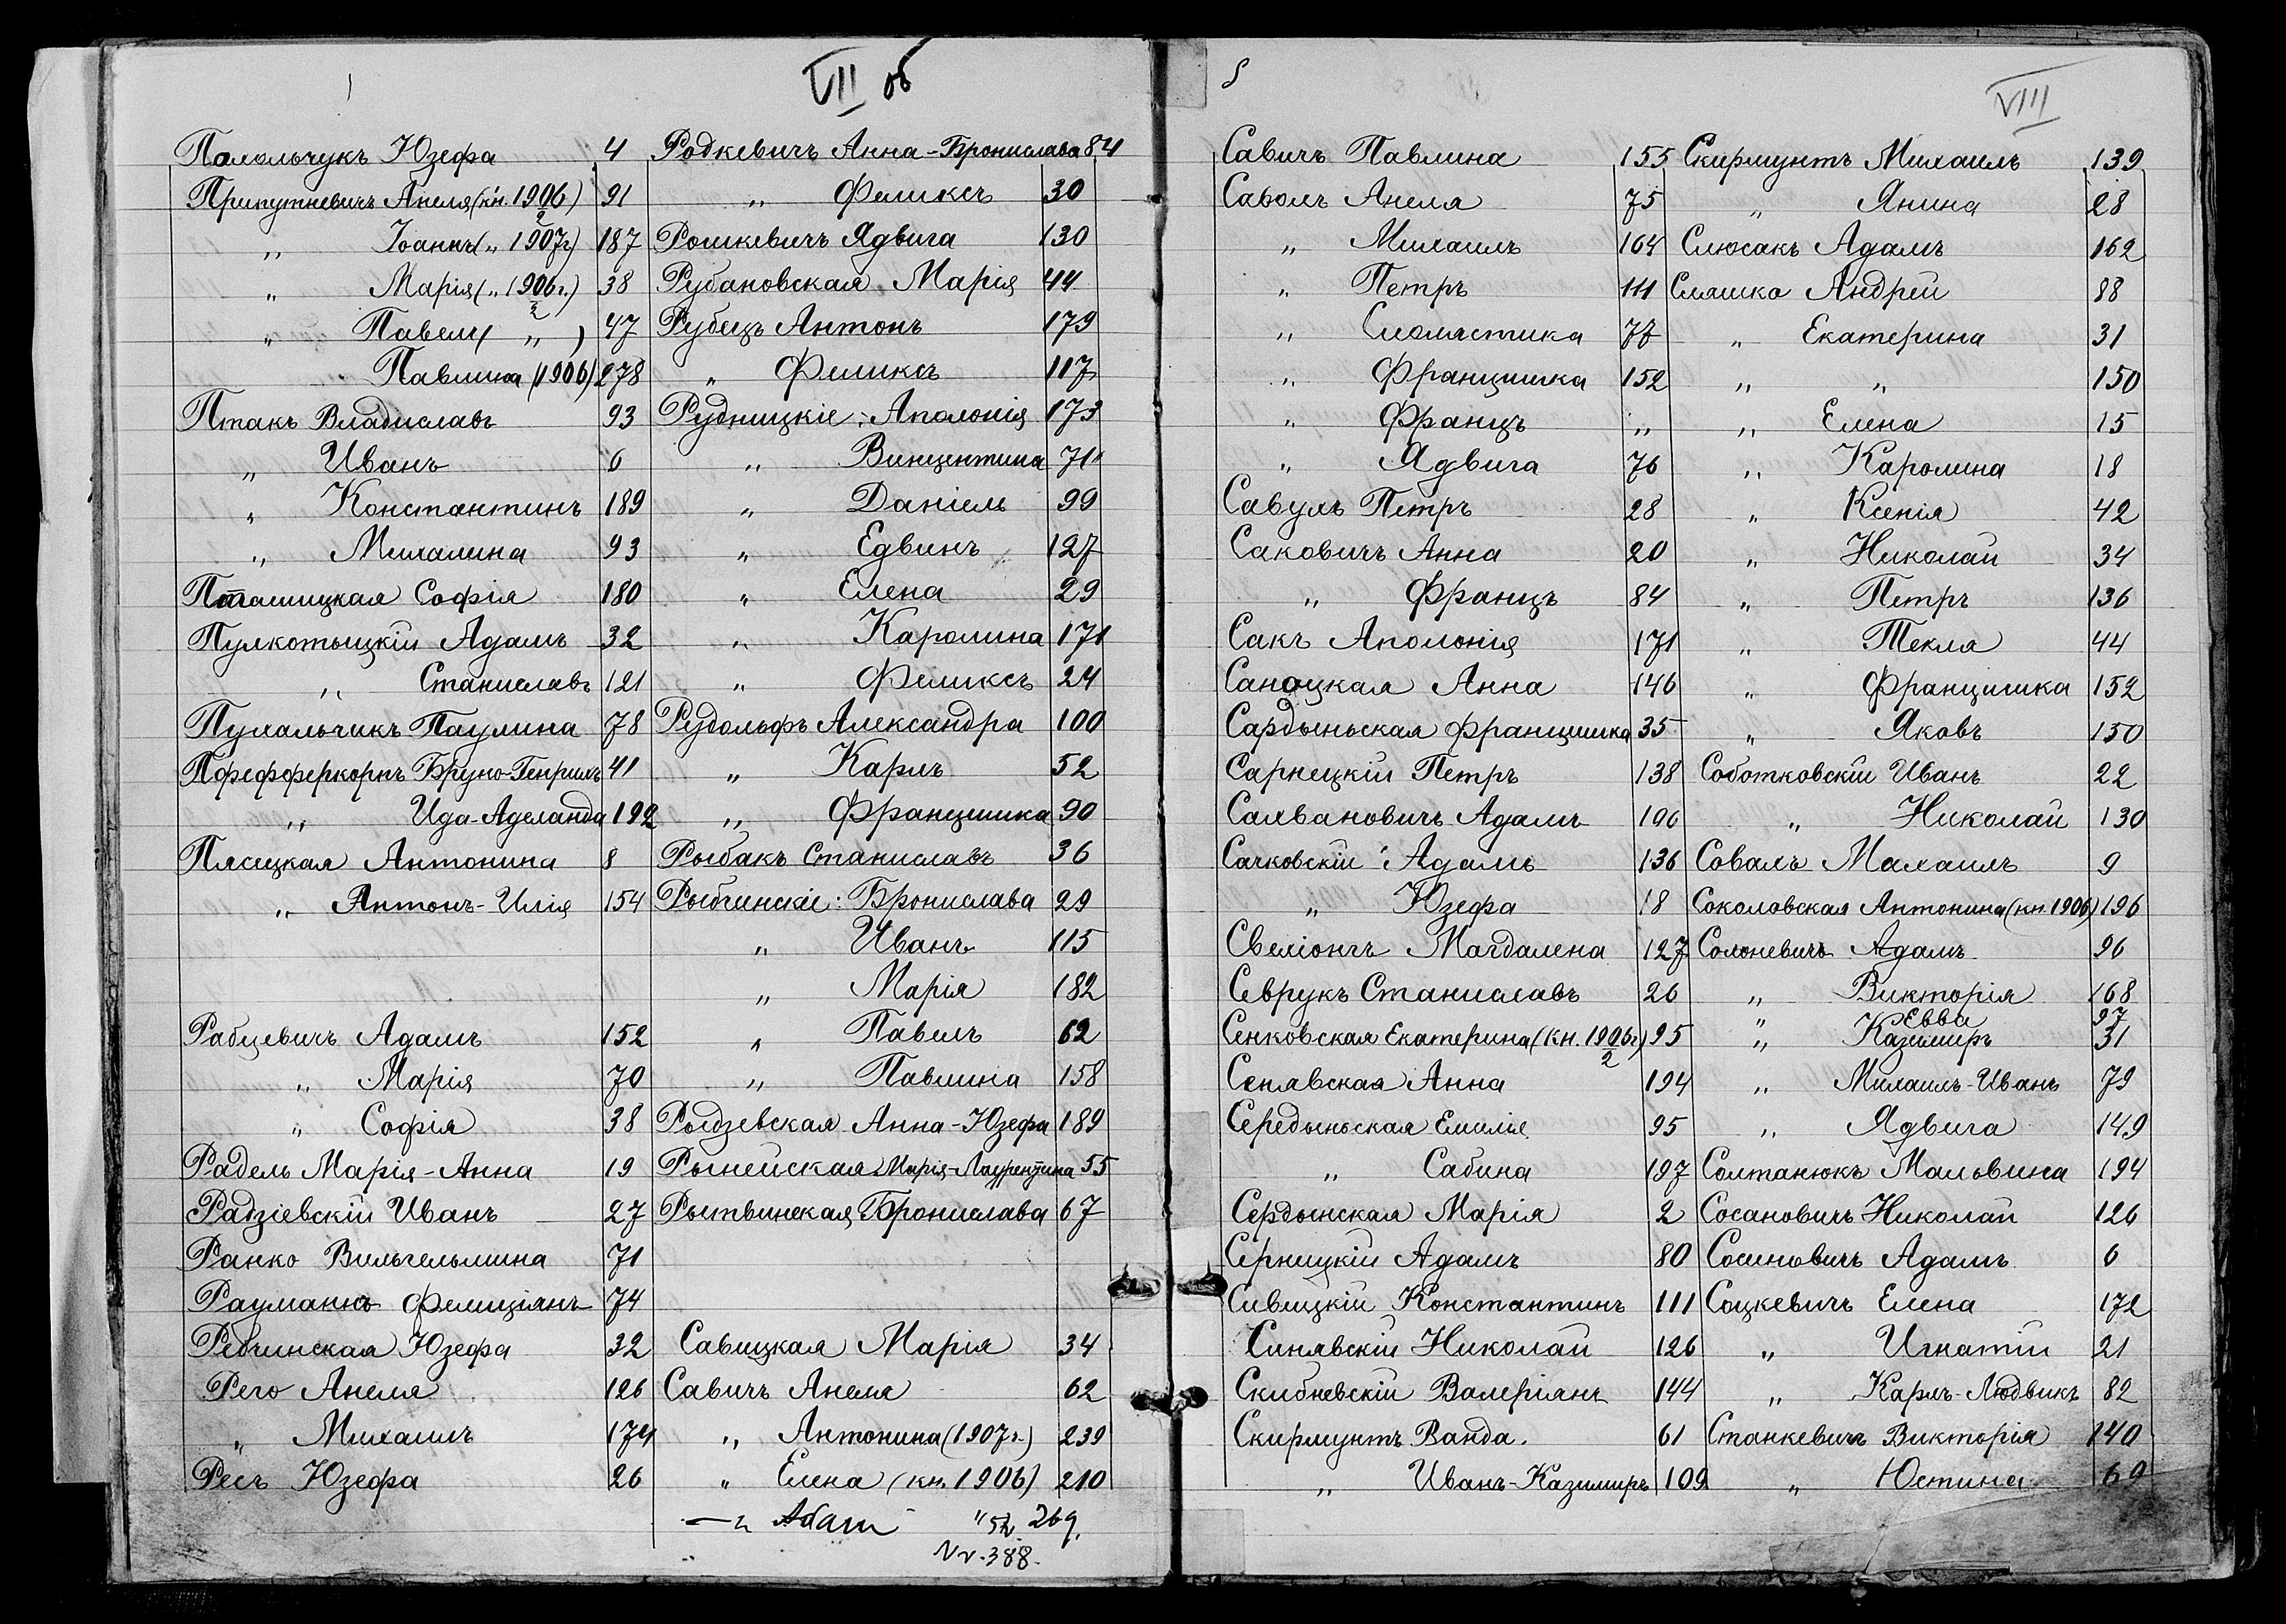 VII об
Палольчукъ Юзефа 4
Припутневичъ Анеля (кн. 1906) 91
2
„ Іоаннъ („ 1907г) 187
„ Марія („ 1906г.) 38
2
„ Павелъ ( „ ) 47
Павлина (1906) 278
Птакъ Владиславъ 93
„ Иванъ 6
„ Константинъ 189
„ Михалина 93
Пташицкая Софія 180
Пулкотыцкій Адамъ 32
„ Станиславъ 121
Пухальчикъ Паулина 78
Пфефферкорнъ Бруно-Генрихъ 41
„ Ида-Аделанда 192
Пясецкая Антонина 8
„ Антонъ-Илія 154
Рабцевичъ Адамъ 152
„ Марія 70
„ Софія 38
Радель Марія-Анна 19
Радзіевскій Иванъ 27
Ранко Вильгельмина 71
Рауманнъ Фелиціянъ 74
Ребчинская Юзефа 32
Рего Анеля 126
„ Михаилъ 174
Ресъ Юзефа 26
Родкевичъ Анна-Бронислава 84
„ Феликсъ 30
Рошкевичъ Ядвига 130
Рубановская Марія 44
Рубецъ Антонъ 179
„ Феликсъ 117
Рудницкіе: Аполонія 173
„ Винцентина 71
„ Даніель 99
„ Едвинъ 127
„ Елена 29
„ Каролина 171
„ Феликсъ 24
Рудольфъ Александра 100
„ Карлъ 52
„ Францишка 90
Рыбакъ Станиславъ 36
Рыбчинскіе: Бронислава 29
„ Иванъ 115
„ Марія 182
„ Павелъ 62
„ Павлина 158
Рыдзевская Анна-Юзефа 189
Рынейская Марія-Лаурентина 55
Рытвинская Бронислава 67
Савицкая Марія 34
Савичъ Анеля 62
„ Антонина (1907г.) 239
„ Елена (кн. 1906) 210
Adam 269.
388.
VIII
Савичъ Павлина 155
Саволъ Анеля 75
„ Михаилъ 164
„ Петръ 111
„ Схолястика 77
„ Францишка 152
„ Францъ „
„ Ядвига 76
Савулъ Петръ 28
Саковичъ Анна 20
„ Францъ 84
Сакъ Аполонія 171
Саноцкая Анна 146
Сардыньская Францишка 35
Сарнецкій Петръ 138
Сахвановичъ Адамъ 106
Сачковскій Адамъ 136
„ Юзефа 18
Свехіонгъ Магдалена 127
Севрукъ Станиславъ 26
Сенковская Екатерина (кн. 1906г) 95
2
Сенявская Анна 194
Середыньская Емилія 95
„ Сабина 197
Сердынская Марія 2
Серницкій Адамъ 80
Сивицкій Константинъ 111
Синявскій Николай 126
Скибневскій Валеріянъ 144
Скирмунтъ Ванда. 61
„ Иванъ-Казимиръ 109
Скирмунтъ Михаилъ 139
„ Янина 28
Слюсакъ Адамъ 162
Сляшко Андрей 88
„ Екатерина 31
„ „ 150
„ Елена 15
„ Каролина 18
„ Ксенія 42
„ Николай 34
„ Петръ 136
„ Текля 44
„ Францишка 152
„ Яковъ 150
Соботковскій Иванъ 22
„ Николай 130
Совалъ Михаилъ 9
Соколовская Антонина (кн. 1906) 196
Солоневичъ Адамъ 96
„ Викторія 168
„ Евва 97
„ Казимиръ 31
„ Михаилъ-Иванъ 79
„ Ядвига 149
Солтанюкъ Мальвина 194
Сосановичъ Николай 126
Сосиновичъ Адамъ 6
Соцкевичъ Елена 172
„ Игнатій 21
„ Карлъ-Людвикъ 82
Станкевичъ Викторія 140
„ Юстина 69